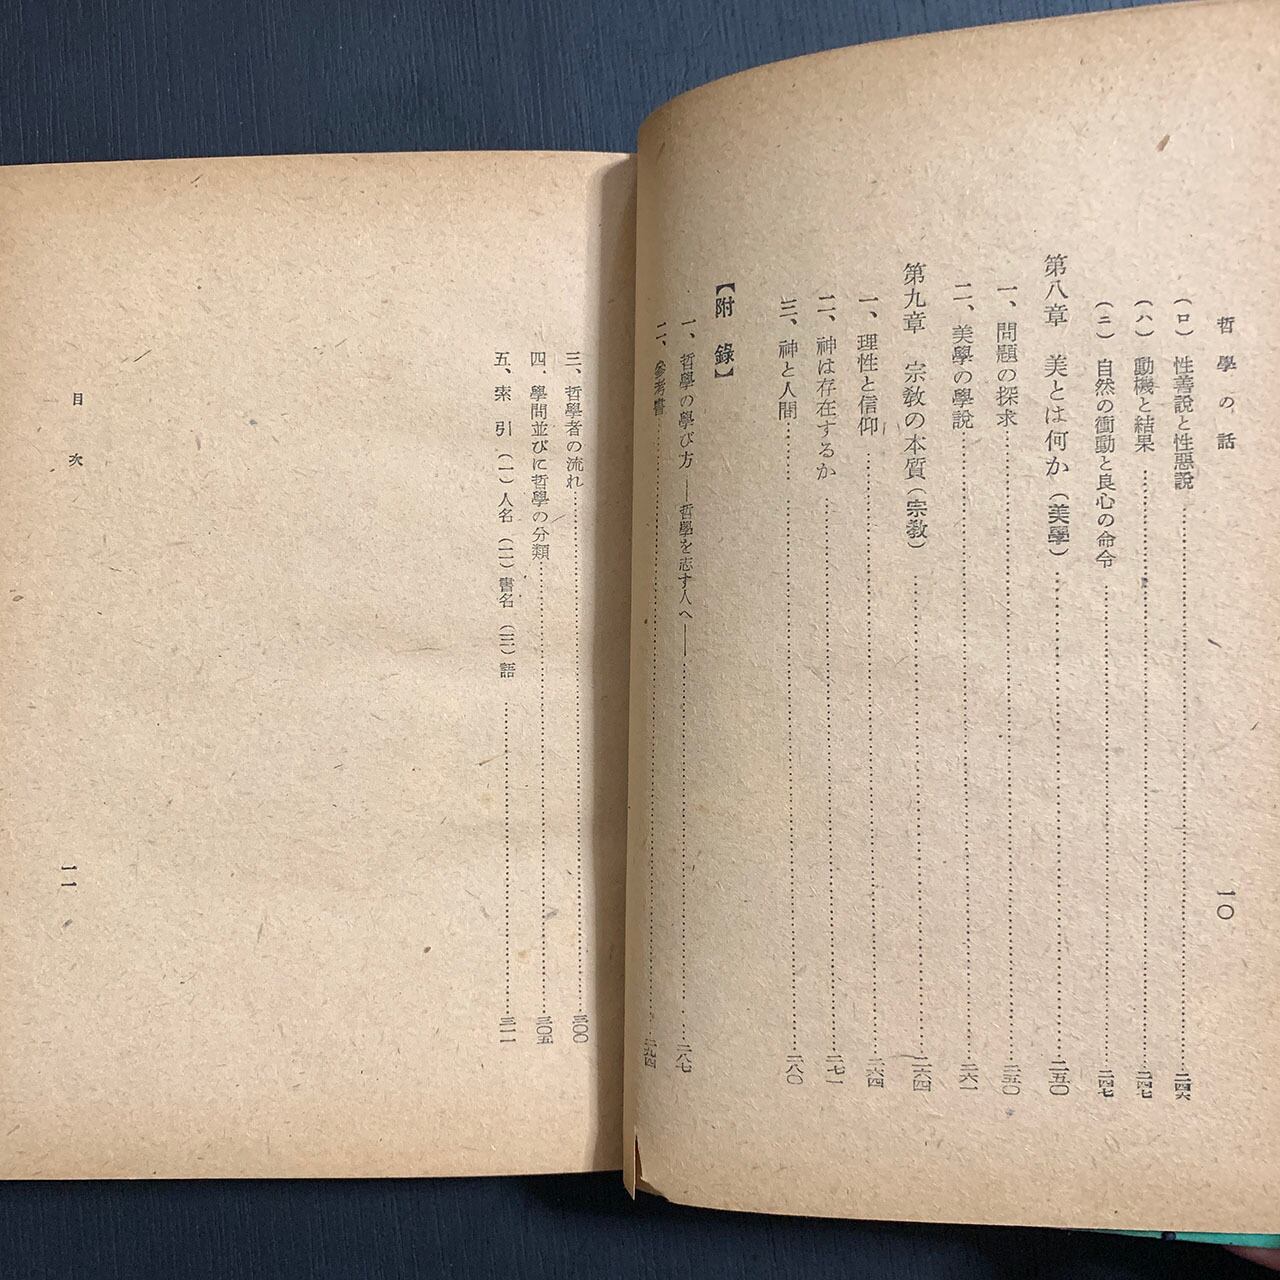 哲學の話
一〇
(ロ) 性善說と性惡說……二四六
(ハ) 動機と結果……二四七
(ニ) 自然の衝動と良心の命令……二四七
第八章 美とは何か(美學)……二五〇
一、問題の探求……二五〇
二、美學の學說……二六一
第九章 宗敎の本質(宗敎)……二六四
一、理性と信仰……二六四
二、神は存在するか……二七一
三、神と人間……二八〇
【附錄】
一、哲學の學び方——哲學を志す人へ——……二八七
二、參考書……二九四
三、哲學者の流れ……三〇〇
四、學問並びに哲學の分類……三〇五
五、索引(一)人名(二)書名(三)語……三一一
目次
一一